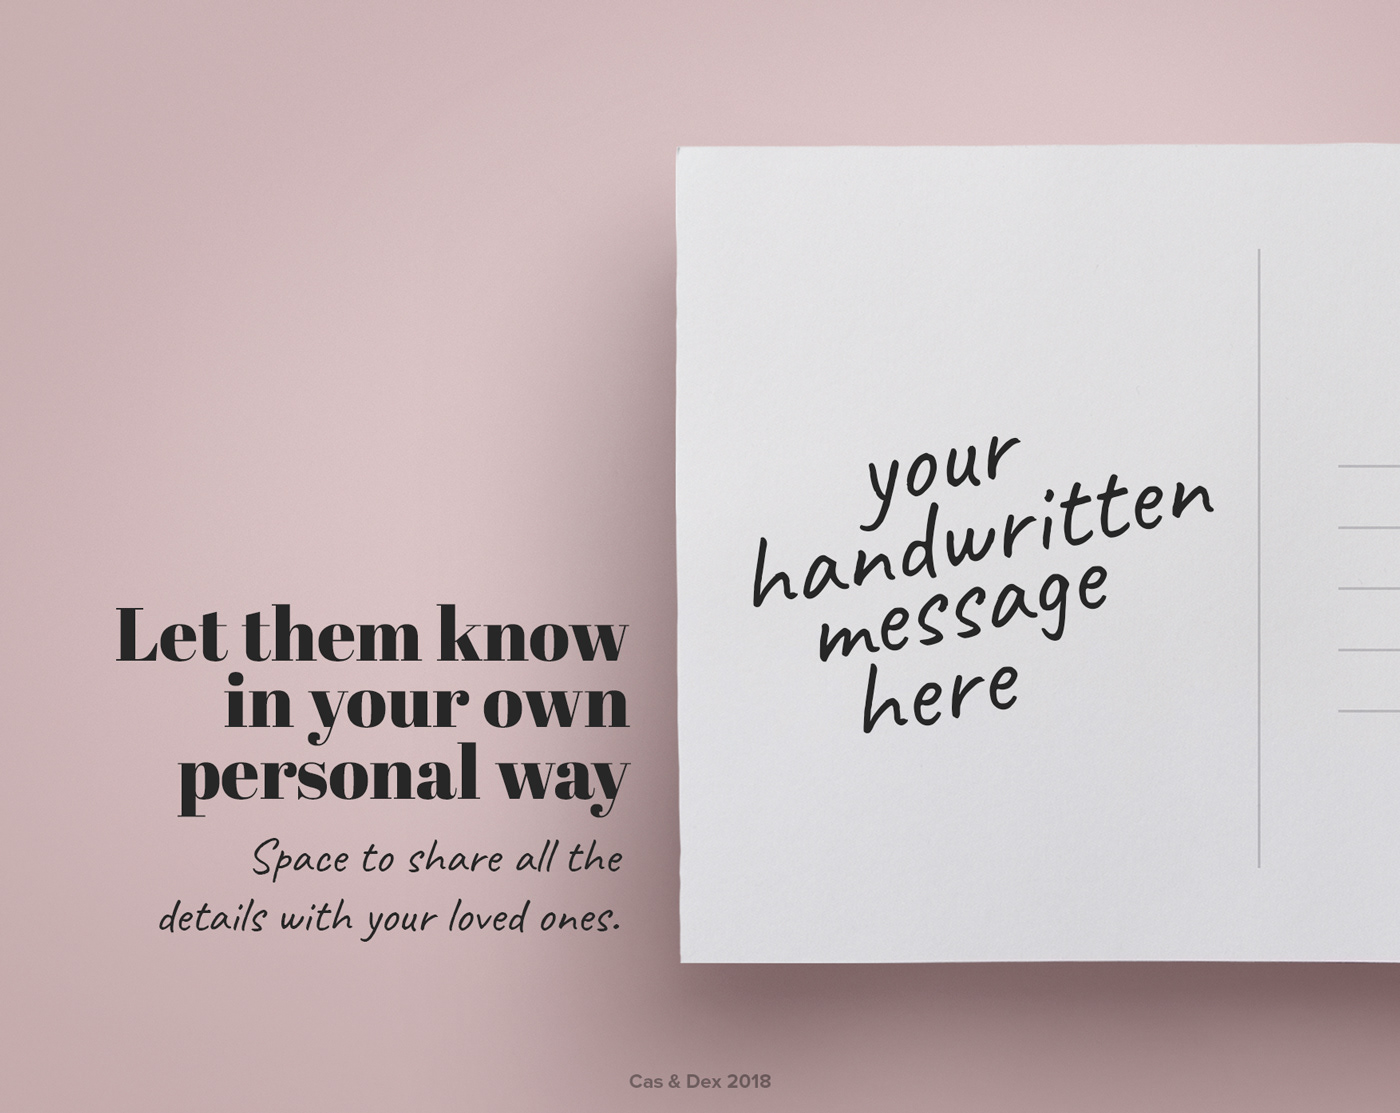 Let them know
in your own
personal way
Space to share all the
details with your loved ones.
your
handwritten
message
here
Cas & Dex 2018